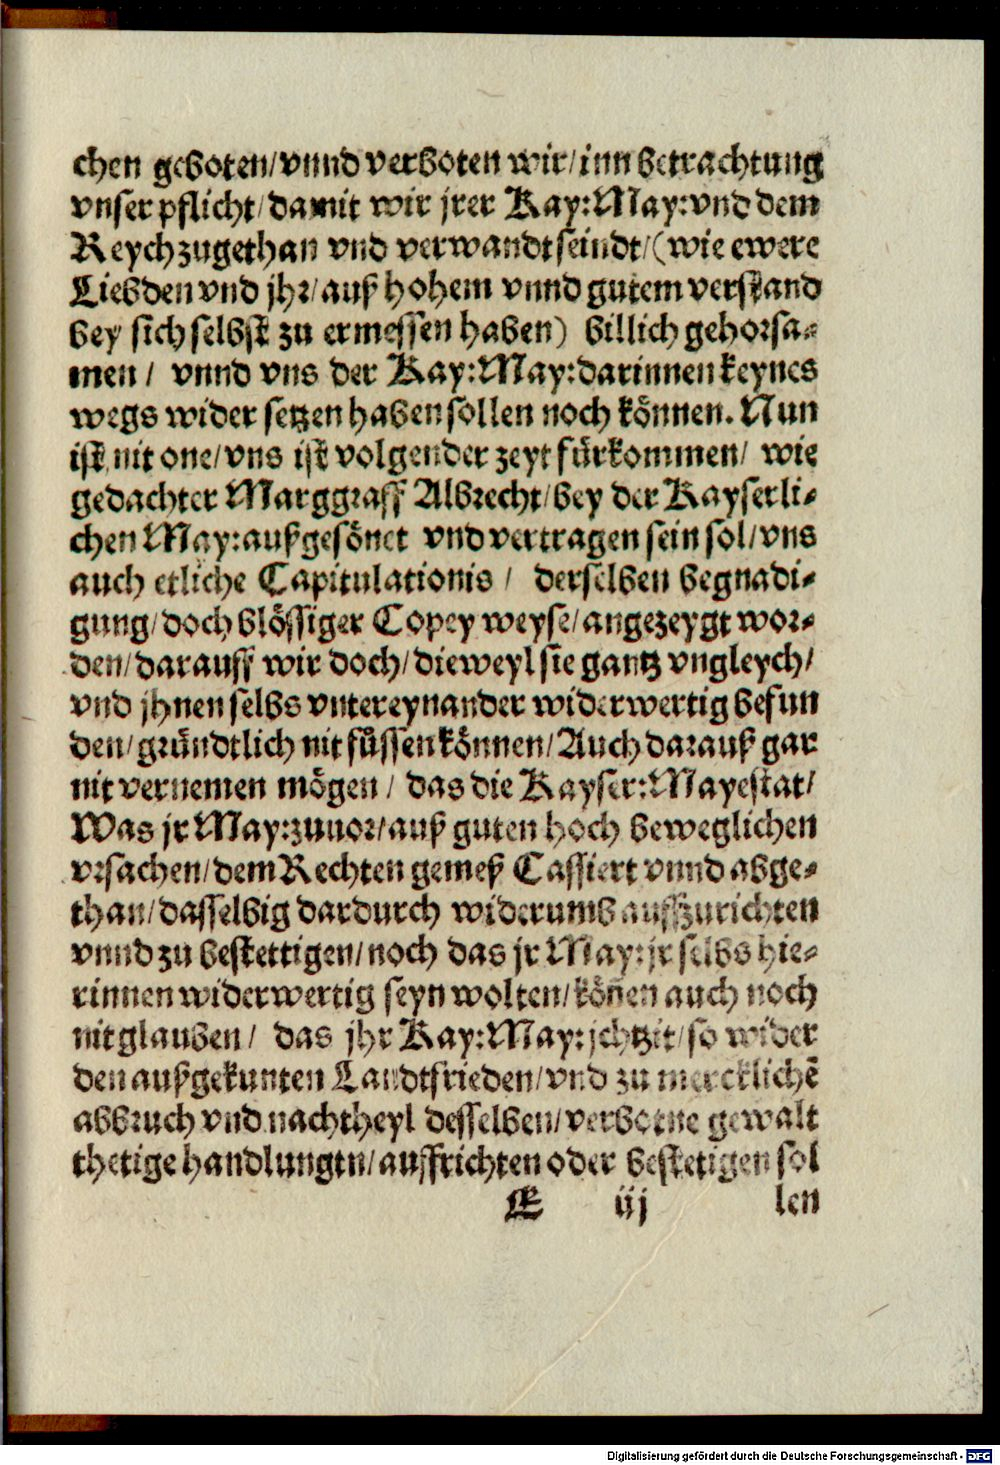 chen geboten/vnnd verboten wir/inn betrachtung
vnser pflicht/damit wir jrer Kay:May:vnd dem
Reych zugethan vnd verwandt seindt/(wie ewere
Liebden vnd jhr/auß hohem vnnd gutem verstand
bey sich selbst zu ermessen haben) billich gehorsa-
men/ vnnd vns der Kay:May:darinnen keynes
wegs wider setzen haben sollen noch können. Nun
ist nit one/vns ist volgender zeyt fürkommen/ wie
gedachter Marggraff Albrecht/bey der Kayserli-
chen May:außgesönet vnd vertragen sein sol/vns
auch etliche Capitulationis/ derselben begnadi-
gung/doch blössiger Copey weyse/angezeygt wor-
den/darauff wir doch/dieweyl sie gantz vngleych/
vnd jhnen selbs vntereynander widerwertig befun
den/gründtlich nit füssen können/Auch darauß gar
nit vernemen mögen/ das die Kayser:Mayestat/
Was jr May:zuuor/auß guten hoch beweglichen
vrsachen/dem Rechten gemeß Cassiert vnnd abge-
than/dasselbig dardurch widerumb auffzurichten
vnnd zu bestettigen/noch das jr May:jr selbs hie-
rinnen widerwertig seyn wolten/könen auch noch
nit glauben/ das jhr Kay:May:jchtzit/so wider
den außgekunten Landtfrieden/vnd zu mercklichē
abbruch vnd nachtheyl desselben/verbotne gewalt
thetige handlungtn/auffrichten oder bestetigen sol
E iij len
Digitalisierung gefördert durch die Deutsche Forschungsgemeinschaft - DFG